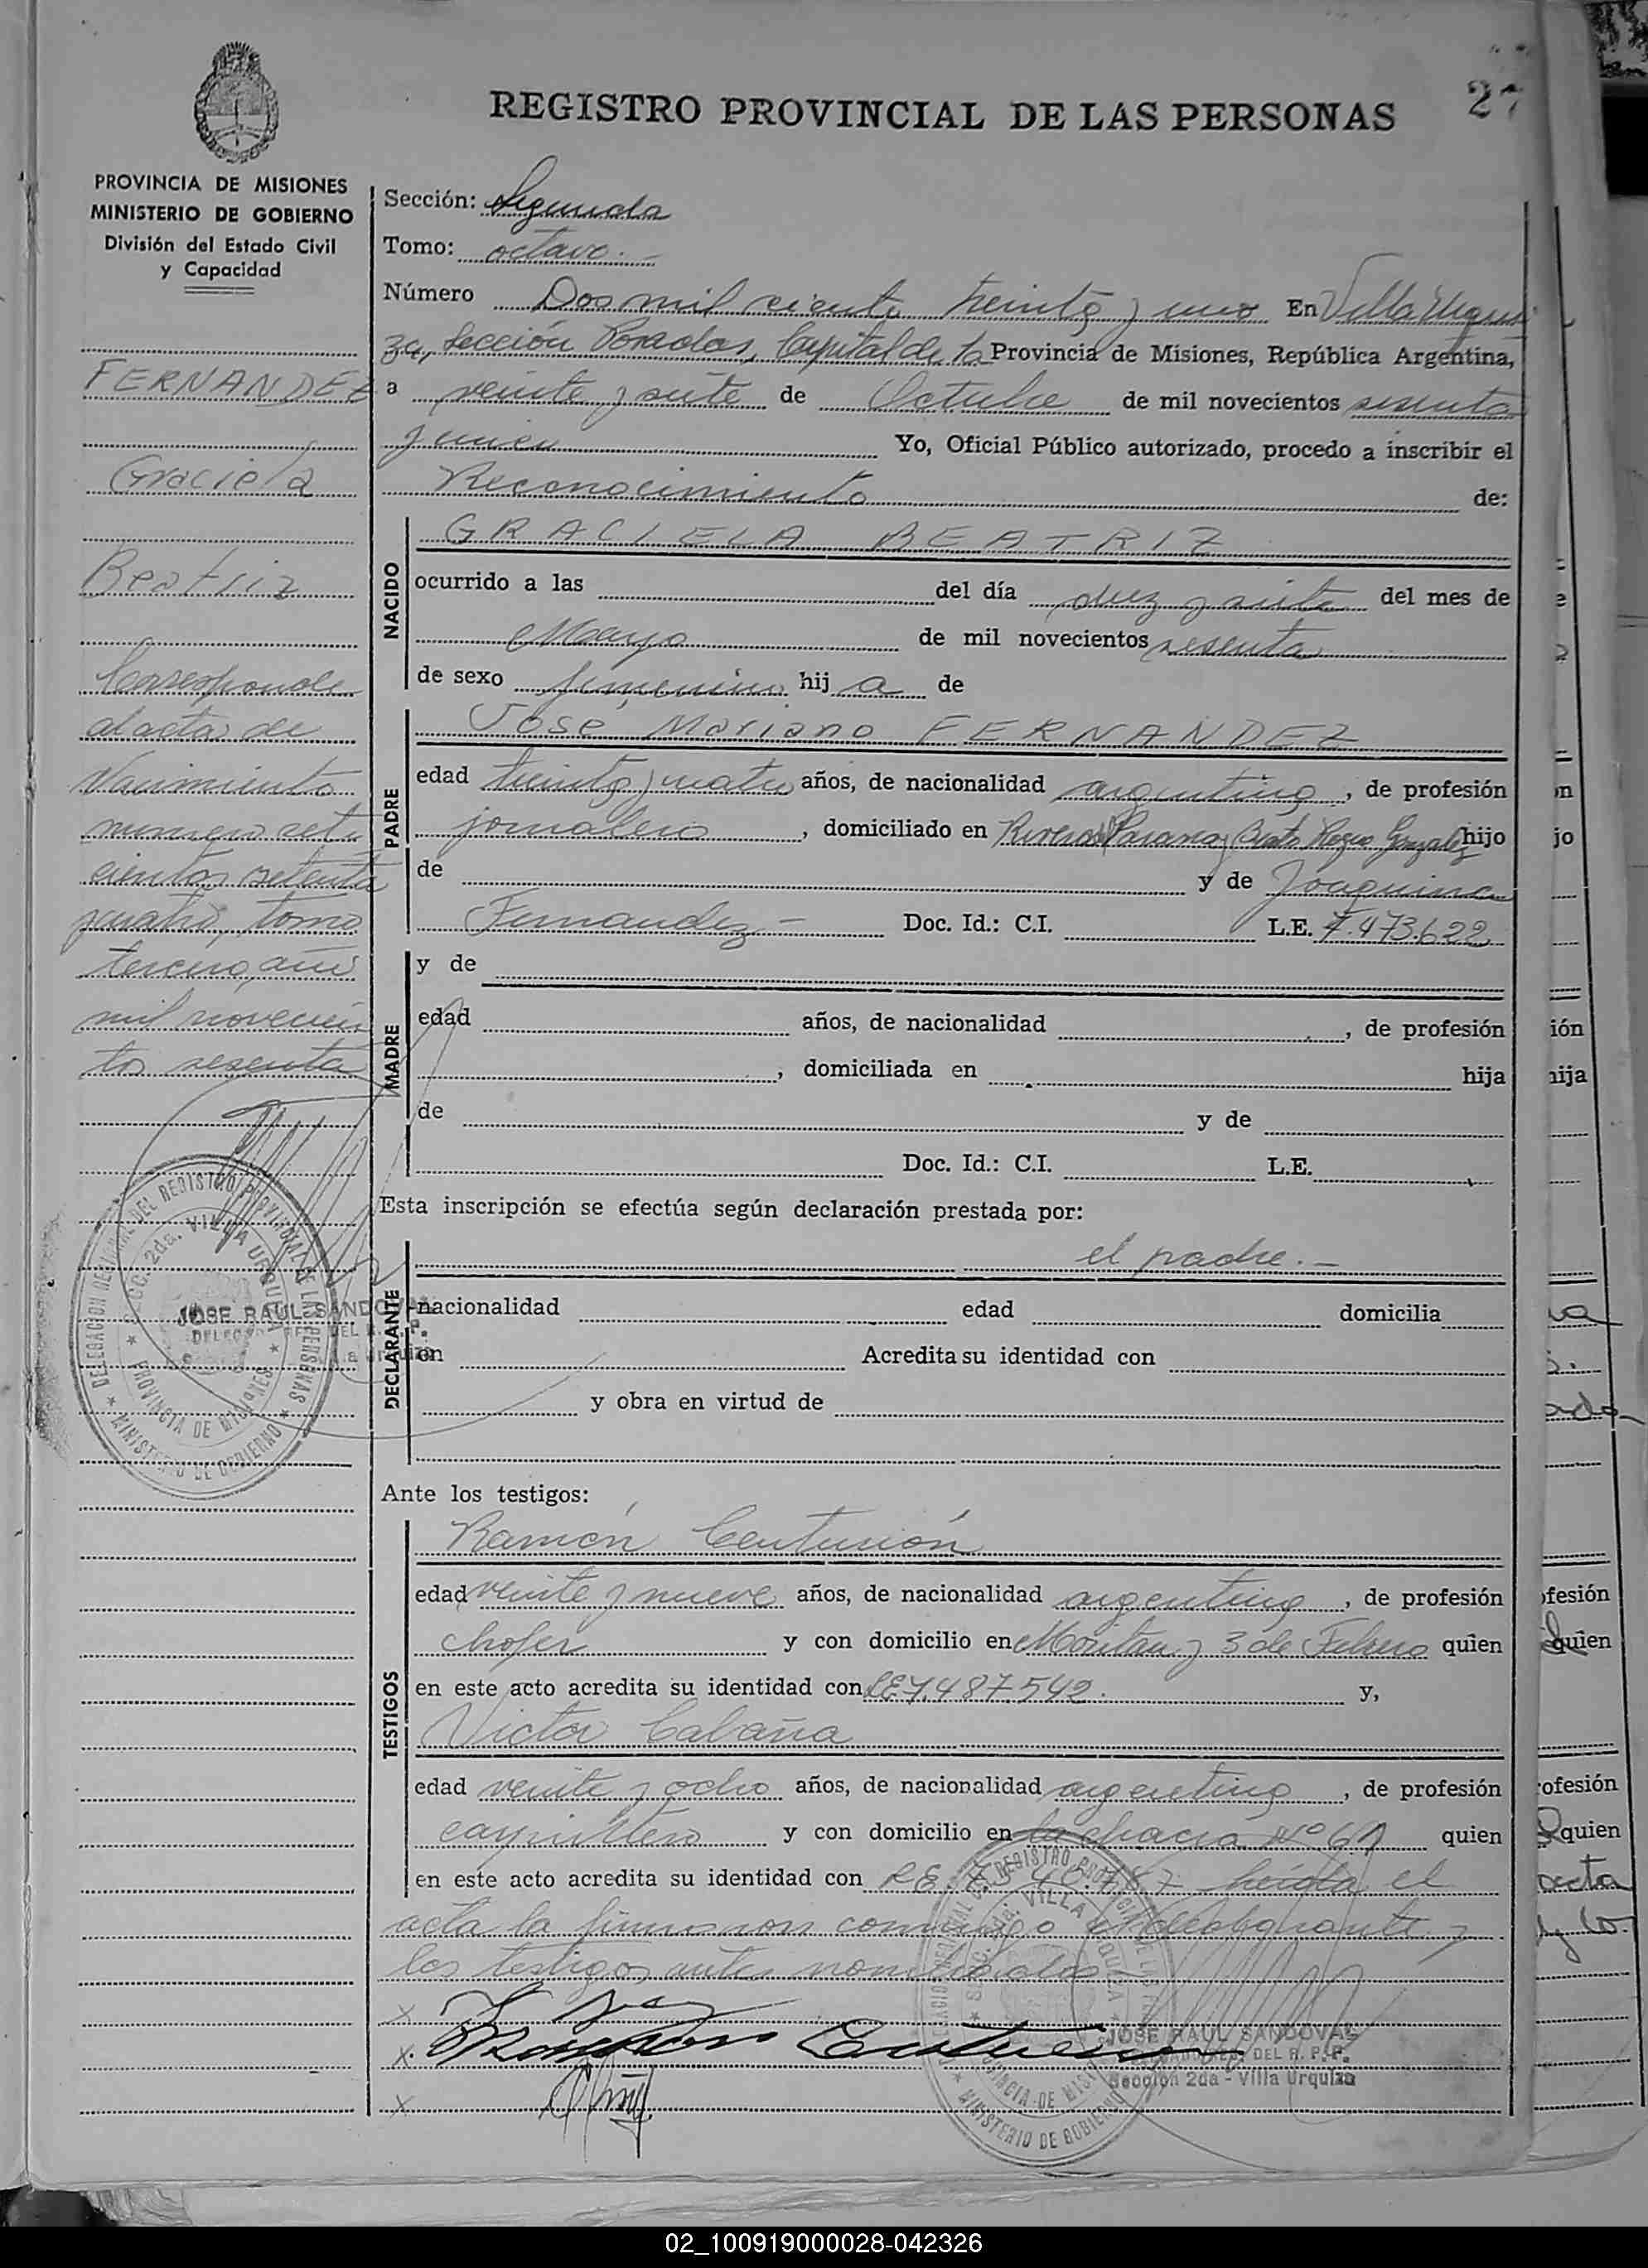 REGISTRO PROVINCIAL DE LAS PERSONAS
27
PROVINCIA DE MISIONES
MINISTERIO DE GOBIERNO
División del Estado Civil
y Capacidad
FERNANDEZ
Graciela
Beatriz
Corresponde
al acta de
Nacimiento
numero sete
cientos setenta
y cuatro, tomo
tercero, año
mil novecien
tos sesenta
Sección: Segunda
Tomo: octavo.-
Número Dos mil ciento treinta y uno En Villa Urqui
za, Sección Posadas, Capital de la Provincia de Misiones, República Argentina,
a veinte y siete de Octubre de mil novecientos sesenta
y Yo, Oficial Público autorizado, procedo a inscribir el
Reconocimiento de:
NACIDO
GRACIELA BEATRIZ
ocurrido a las del día diez y siete del mes de
Mayo de mil novecientos sesenta
de sexo femenino hij a de
PADRE
José Mariano FERNANDEZ
edad treinta y cuatro años, de nacionalidad argentina, de profesión
jornalero, domiciliado en Rivera del Parana y Beato Roque Gonzalez hijo
de y de Joaquina
Fernandez - Doc. Id.: C.I. L.E. 7.473.622
MADRE
y de
edad años, de nacionalidad , de profesión
, domiciliada en hija
de y de
Doc. Id.: C.I. L.E.
Esta inscripción se efectúa según declaración prestada por:
el padre.-
DECLARANTE
nacionalidad edad domicilia
en Acredita su identidad con
y obra en virtud de
Ante los testigos:
TESTIGOS
Ramón Centurión
edad veinte y nueve años, de nacionalidad argentina, de profesión
chofer y con domicilio en y 3 de Febrero quien
en este acto acredita su identidad con LE 7.487.542. y,
Victor Cabaña
edad veinte y ocho años, de nacionalidad argentina, de profesión
y con domicilio en la chacra Nº 61 quien
en este acto acredita su identidad con LE. leida el
acta la firmaron conmigo el declarante y
los testigos antes nombrados
DELEGACION DEL REGISTRO PROVINCIAL DE LAS PERSONAS
SECC. 2da. VILLA URQUIZA
PROVINCIA DE MISIONES
MINISTERIO DE GOBIERNO
JOSE RAUL SANDOVAL
DEL R. P. P.
Sección 2da - Villa Urquiza
Ramon Centurion
02_100919000028-042326